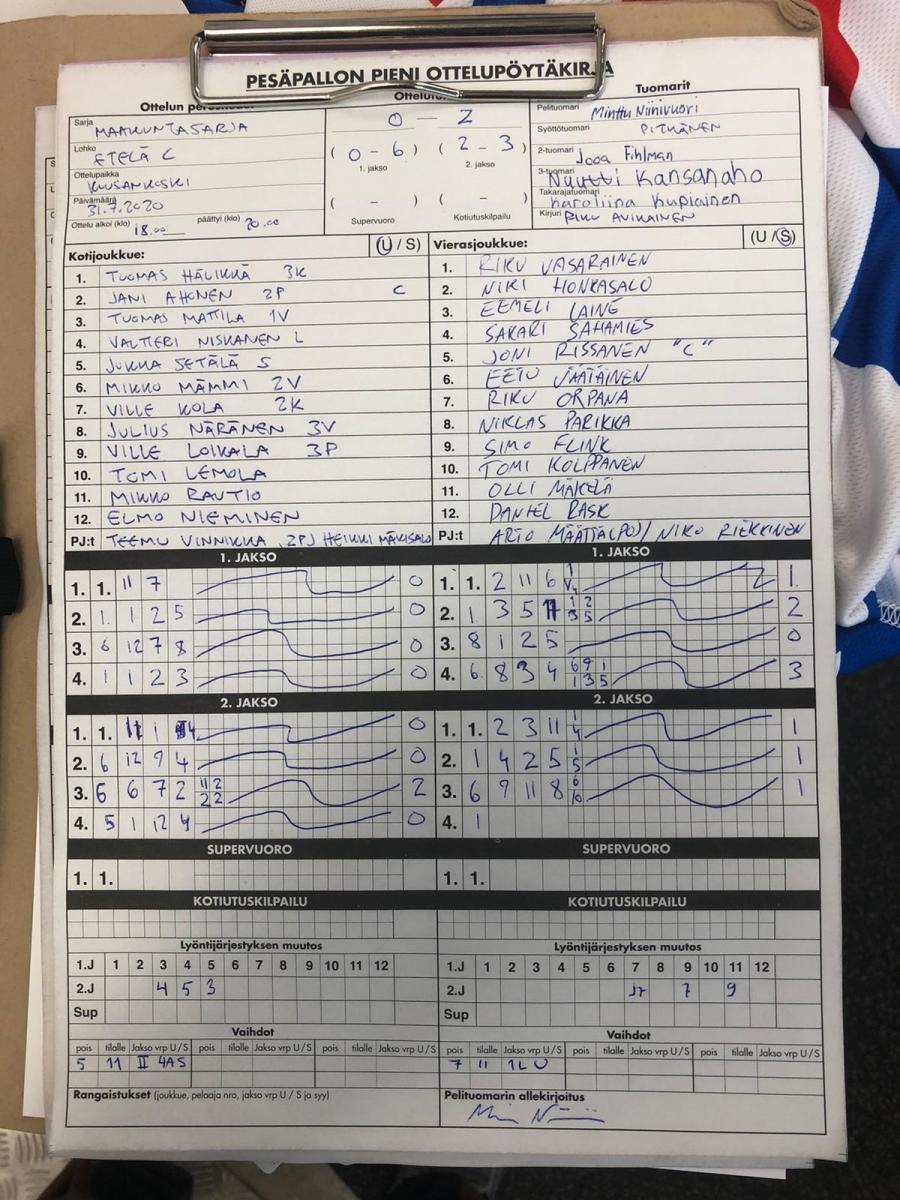 PESÄPALLON PIENI OTTELUPÖYTÄKIRJA
Ottelun
Tuomarit
Sarja MAAKUNTASARJA
Lohko ETELÄ C
Ottelupaikka KUUSANKOSKI
Päivämäärä 31.7.2020
Ottelu alkoi (klo) 18.00 päättyi (klo) 20.00
0 - 2
( 0 - 6 ) ( 2 - 3 )
1. jakso 2. jakso
( - ) ( - )
Supervuoro Kotiutuskilpailu
Pelituomari Minttu Niinivuori
Syöttötuomari PITKÄNEN
2-tuomari Jooa Fihlman
3-tuomari Nuutti Kansanaho
Takarajatuomari Karoliina Kupiainen
Kirjuri PIKU AVIKAINEN
Kotijoukkue: (U / S)
1. TUOMAS HÄLIKKÄ 3K
2. JANI AHONEN 2P C
3. TUOMAS MATTILA 1V
4. VALTTERI NISKANEN L
5. JUKKA SETÄLÄ S
6. MIKKO MÄMMI 2V
7. VILLE KOLA 2K
8. JULIUS NÄRÄNEN 3V
9. VILLE LOIKALA 3P
10. TOMI LEMOLA
11. MIKKO RAUTIO
12. ELMO NIEMINEN
PJ:t TEEMU VINNIKKA 2PJ HEIKKI MÄKISALO
Vierasjoukkue: (U / S)
1. RIKU VASARAINEN
2. NIKI HONKASALO
3. EEMELI LAINE
4. SAKARI SAHAMIES
5. JONI RISSANEN "C"
6. EETU VÄÄTÄINEN
7. RIKU ORPANA
8. NIKLAS PARIKKA
9. SIMO FLINK
10. TOMI KOLPPANEN
11. OLLI MÄKELÄ
12. DANIEL RASK
PJ:t ARTO MÄÄTTÄ(PO)/ NIKO RIEKKINEN
1. JAKSO
1. 1. 11 7 0
2. 1. 1 2 5 0
3. 6 12 7 8 0
4. 1 1 2 3 0
2. JAKSO
1. 1. 11 1 4 0
2. 6 12 9 4 0
3. 6 6 7 2 11 2 2 2 2
4. 5 1 12 4 0
SUPERVUORO
1. 1.
KOTIUTUSKILPAILU
Lyöntijärjestyksen muutos
1.J 1 2 3 4 5 6 7 8 9 10 11 12
2.J 4 5 3
Sup
Vaihdot
pois tilalle Jakso vrp U/S pois tilalle Jakso vrp U/S pois tilalle Jakso vrp U/S
5 11 II 4AS
Rangaistukset (joukkue, pelaaja nro, jakso vrp U / S ja syy)
1. JAKSO
1. 1. 2 11 6 1 1.
2. 1. 3 5 1 2 3 5 2
3. 8 1 2 5 0
4. 6 8 3 4 6 9 1 1 3 5 3
2. JAKSO
1. 1. 2 3 11 1 4 1
2. 1 4 2 5 1 5 1
3. 6 9 11 8 6 10 1
4. 1
SUPERVUORO
1. 1.
KOTIUTUSKILPAILU
Lyöntijärjestyksen muutos
1.J 1 2 3 4 5 6 7 8 9 10 11 12
2.J 7 9
Sup
Vaihdot
pois tilalle Jakso vrp U/S pois tilalle Jakso vrp U/S pois tilalle Jakso vrp U/S
7 11 1L U
Pelituomarin allekirjoitus